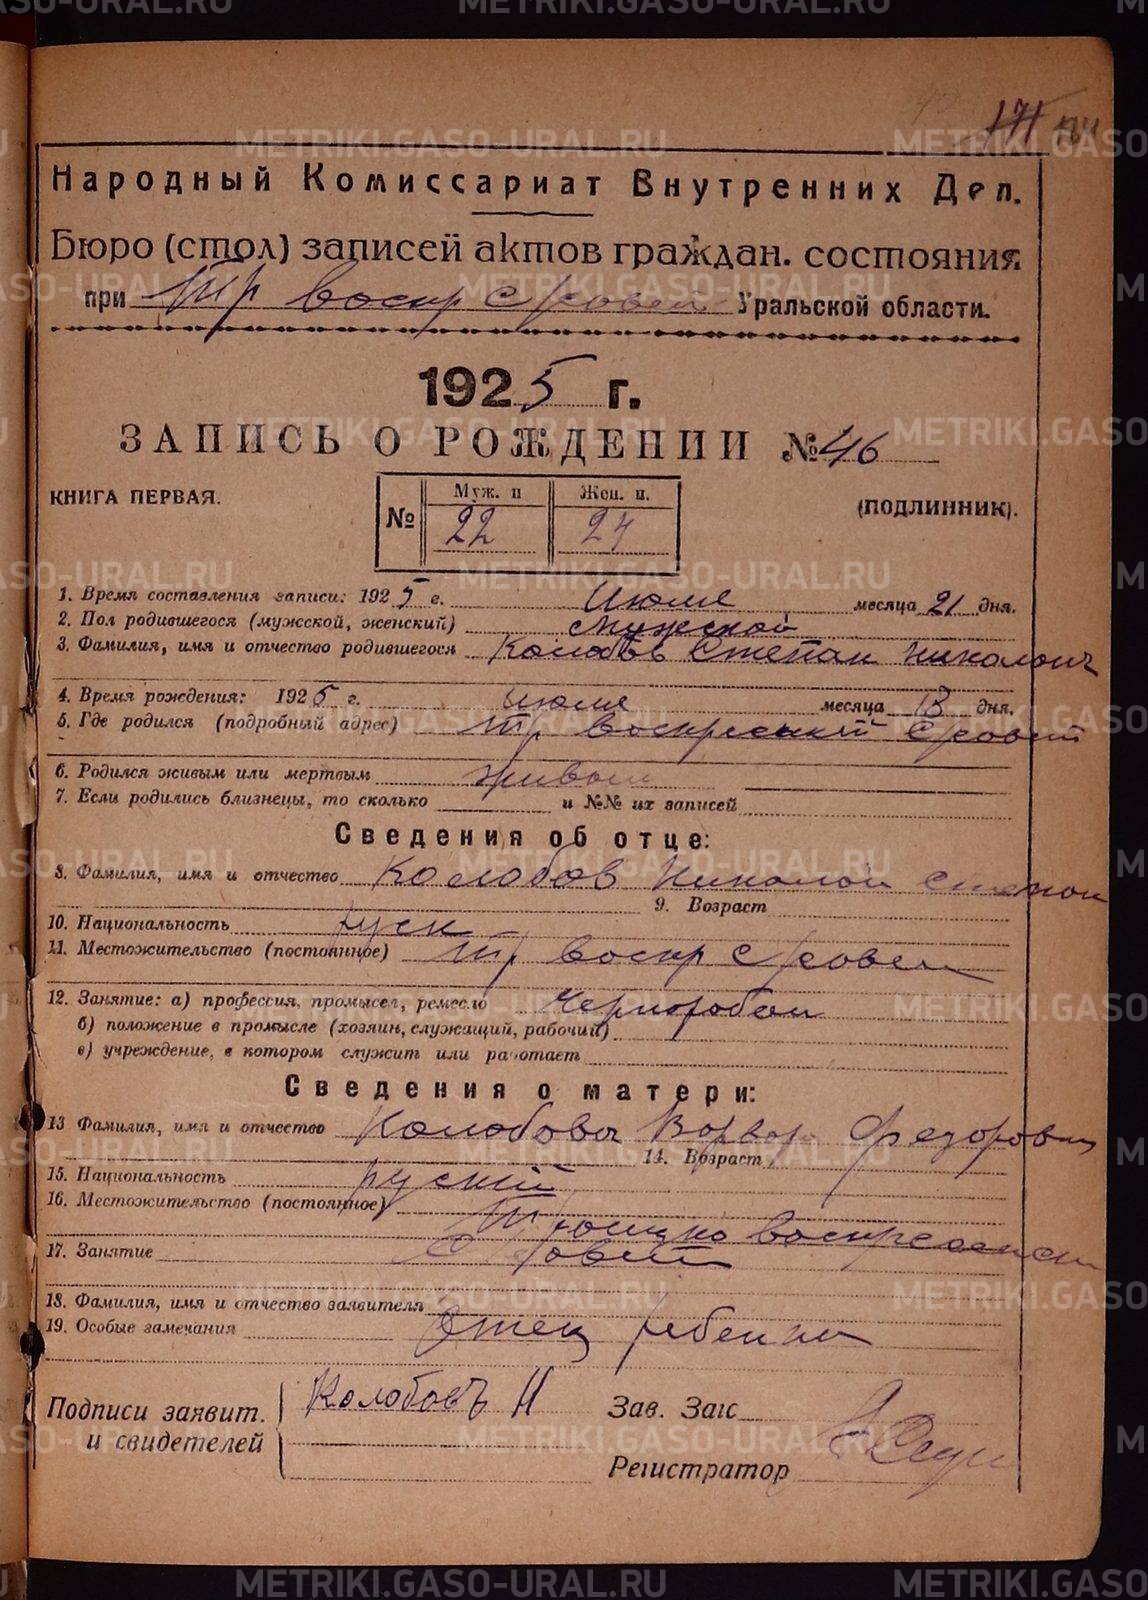 171
Народный Комиссариат Внутренних Дел.
Бюро (стол) записей актов граждан. состояния
при Тр воскр с/совет Уральской области.
1925 г.
ЗАПИСЬ О РОЖДЕНИИ №46
КНИГА ПЕРВАЯ.
№ Муж. п 22 Жен. п. 24
(подлинник).
1. Время составления записи: 1925 г. Июля месяца 21 дня.
2. Пол родившегося (мужской, женский) мужской
3. Фамилия, имя и отчество родившегося Колобов Степан Николаич
4. Время рождения: 1925 г. июля месяца 13 дня.
5. Где родился (подробный адрес) Тр воскресенский с/совет
6. Родился живым или мертвым живым
7. Если родились близнецы, то сколько и №№ их записей
Сведения об отце:
8. Фамилия, имя и отчество Колобов Николай степан
9. Возраст
10. Национальность руск
11. Местожительство (постоянное) Тр воскр с/совет
12. Занятие: а) профессия, промысел, ремесло Чернорабоч
б) положение в промысле (хозяин, служащий, рабочий)
в) учреждение, в котором служит или работает
Сведения о матери:
13 Фамилия, имя и отчество Колобова Варвара Федоровна
14. Возраст
15. Национальность руский
16. Местожительство (постоянное)
Троицко воскресенск
17. Занятие с совет
18. Фамилия, имя и отчество заявителя
19. Особые замечания Отец ребенка
Подписи заявит. и свидетелей Колобовъ Н
Зав. Загс
Регистратор
METRIKI.GASO-URAL.RU